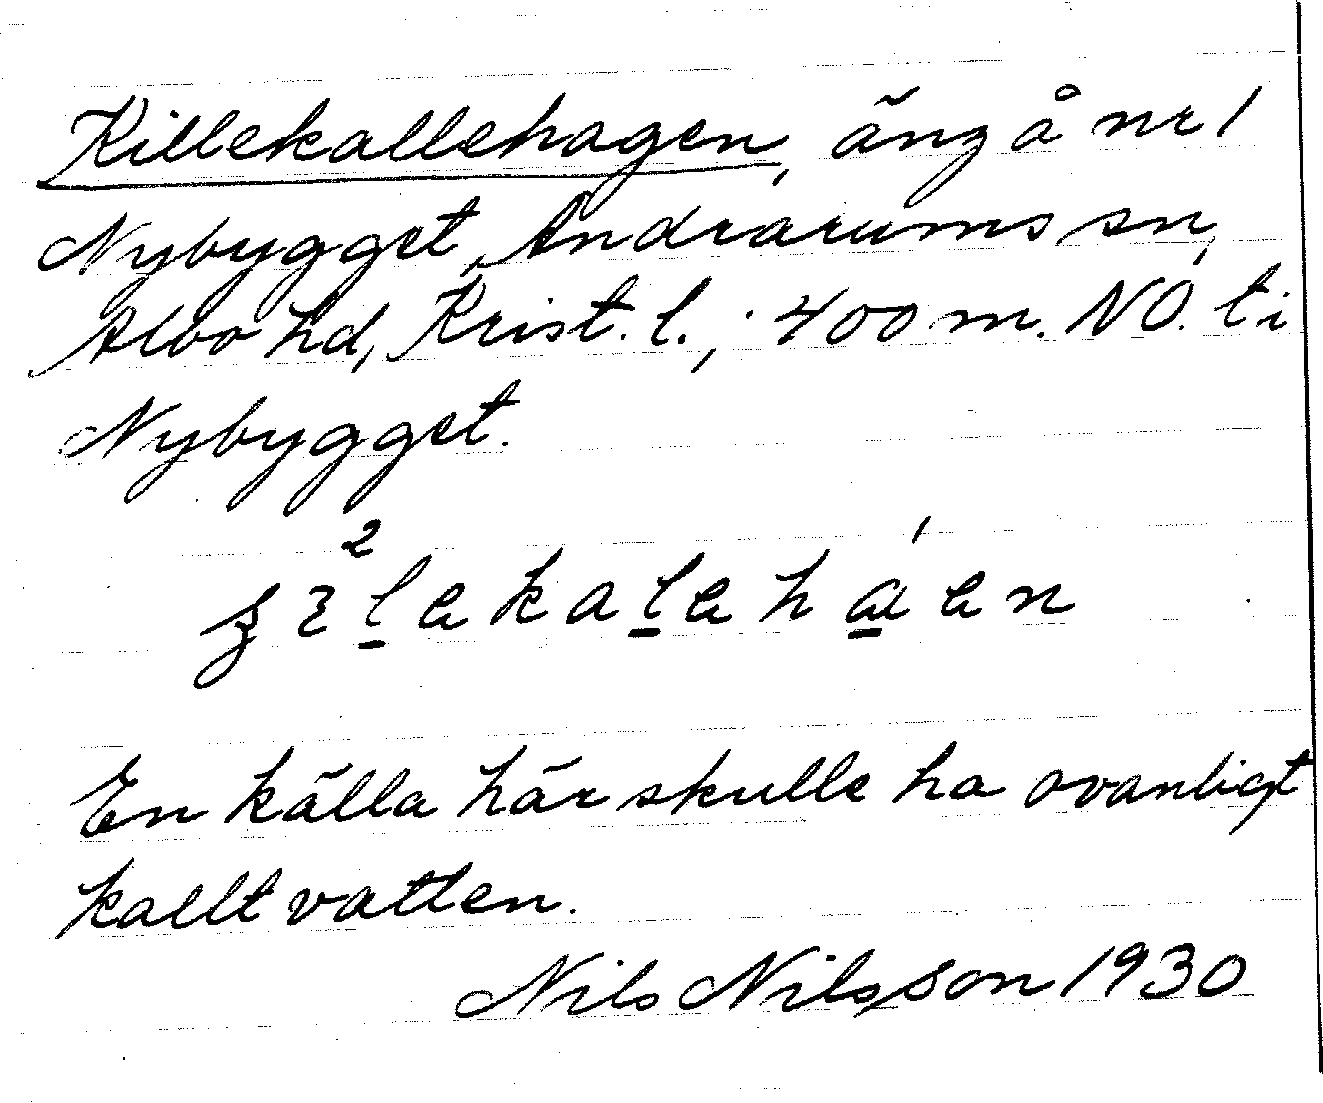 Killekallehagen, äng å nr 1
Nybygget, Andrarums sn,
Albo hd, Krist. l.; 400 m. NO. ti
Nybygget.
En källa här skulle ha ovanligt
kallt vatten.
Nils Nilsson 1930